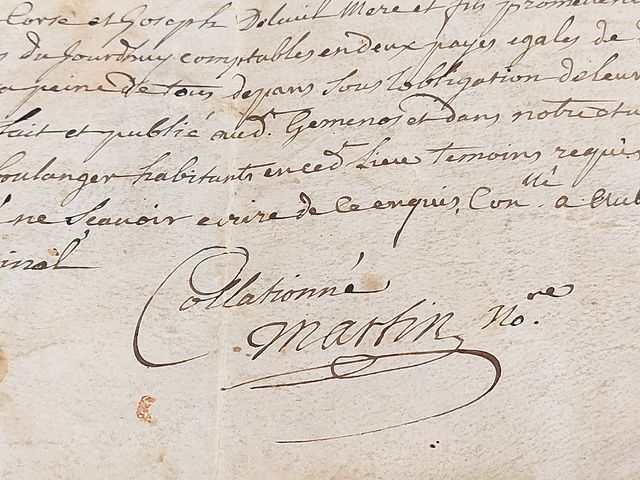 Corse et Joseph Delauil Mere et fils promettent
du Jourdhuy comptables en deux payes egales de
peine de tous depans Sous lobligation de leur
fait et publié aud. Gemenos et dans notre etu
boulanger habitants en ced. Lieu temoins requis
ne Scavoir ecrire de Ce enquis, Con.llé a Aub
inal
Collationné
Martin No.re